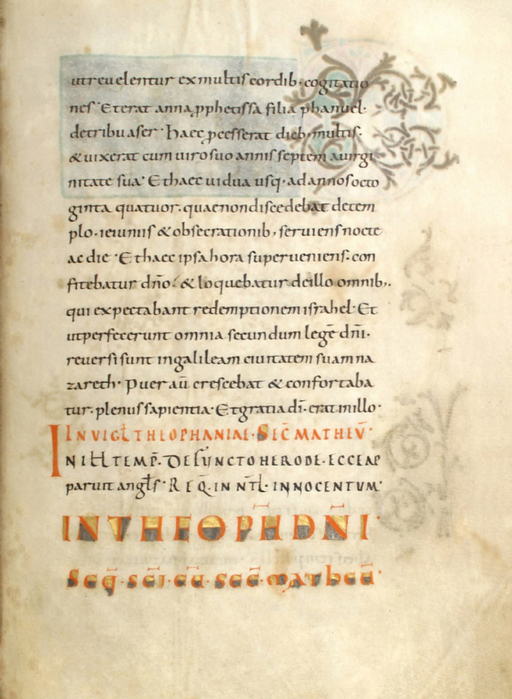 utrevelentur exmultiscordib· cogitatio
nes· Et erat anna ꝓphetissa filia phanuel·
detribu aser· Haec ꝓcesserat dieb; multis·
&vixerat cum viro suo annis septem avirgi
nitate sua· Et haec vidua usq· ad annos octo
ginta quatuor· quae non discedebat detem
plo· ieiuniis & obsecrationib; serviens nocte
ac die· Et haec ipsa hora superveniens· con
fitebatur dño· & loquebatur deillo omnib;
qui expectabant redemptionem israhel· Et
utperfecerunt omnia secundum legē dñi·
reversi sunt in galileam civitatem suam na
zareth· Puer aū crescebat & confortaba
tur· plenus sapientia· Et gratia dī· erat inillo·
IN VIGL THEOPHANIAE· SEC̄ MATHEV̄·
IN ILL TEMP̄· DEFUNCTO HERODE· ECCE AP
paruit angls· REQ̄· IN NTL· INNOCENTUM·
IN THEOPH DÑI·
Seq̄· sc̄i· eū· sec̄d· matheū·